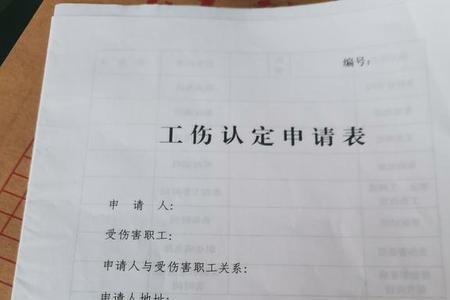 编号：
工伤认定申请表
申请人：
受伤害职工：
申请人与受伤害职工关系：
申请人地址：